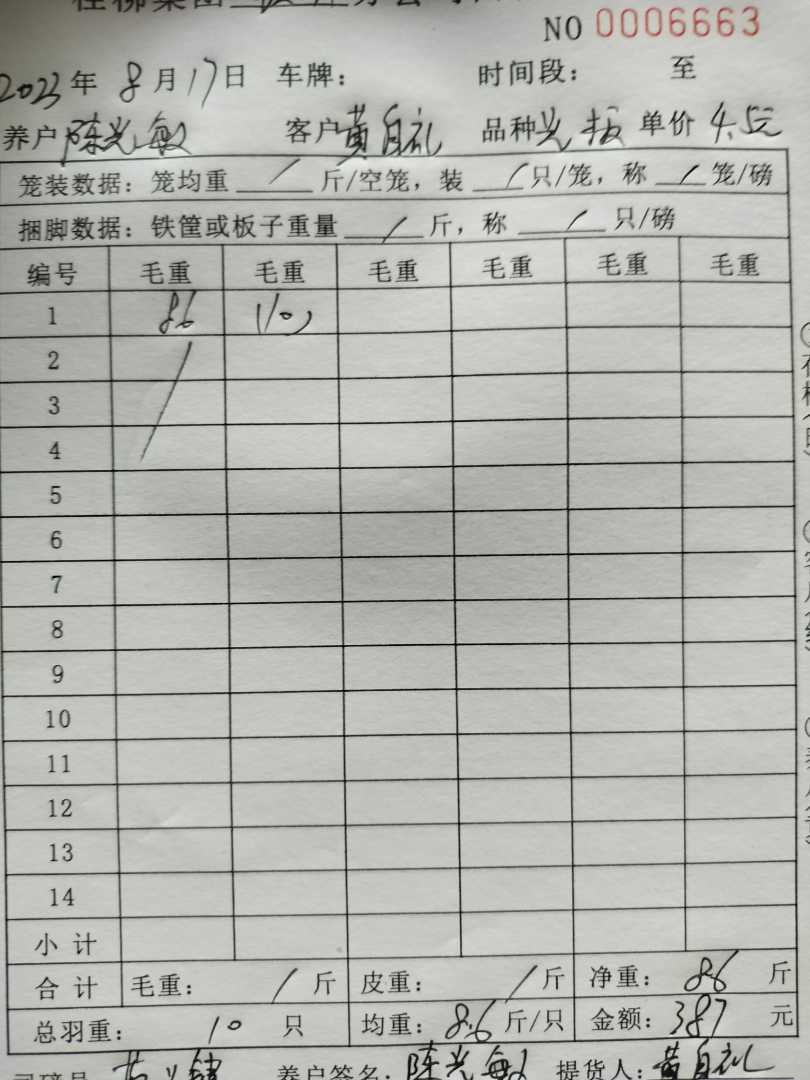 桂柳集团
NO 0006663
2023年8月17日 车牌: 时间段: 至
养户陈光敏 客户黄自礼 品种 单价4.5元
笼装数据: 笼均重 / 斤/空笼, 装 / 只/笼, 称 / 笼/磅
捆脚数据: 铁筐或板子重量 / 斤, 称 / 只/磅
编号 毛重 毛重 毛重 毛重 毛重 毛重
1 86 (10)
2
3
4
5
6
7
8
9
10
11
12
13
14
小计
合计 毛重: / 斤 皮重: / 斤 净重: 86 斤
总羽重: 10 只 均重: 8.6 斤/只 金额: 387 元
司磅员 养户签名: 陈光敏 提货人: 黄自礼